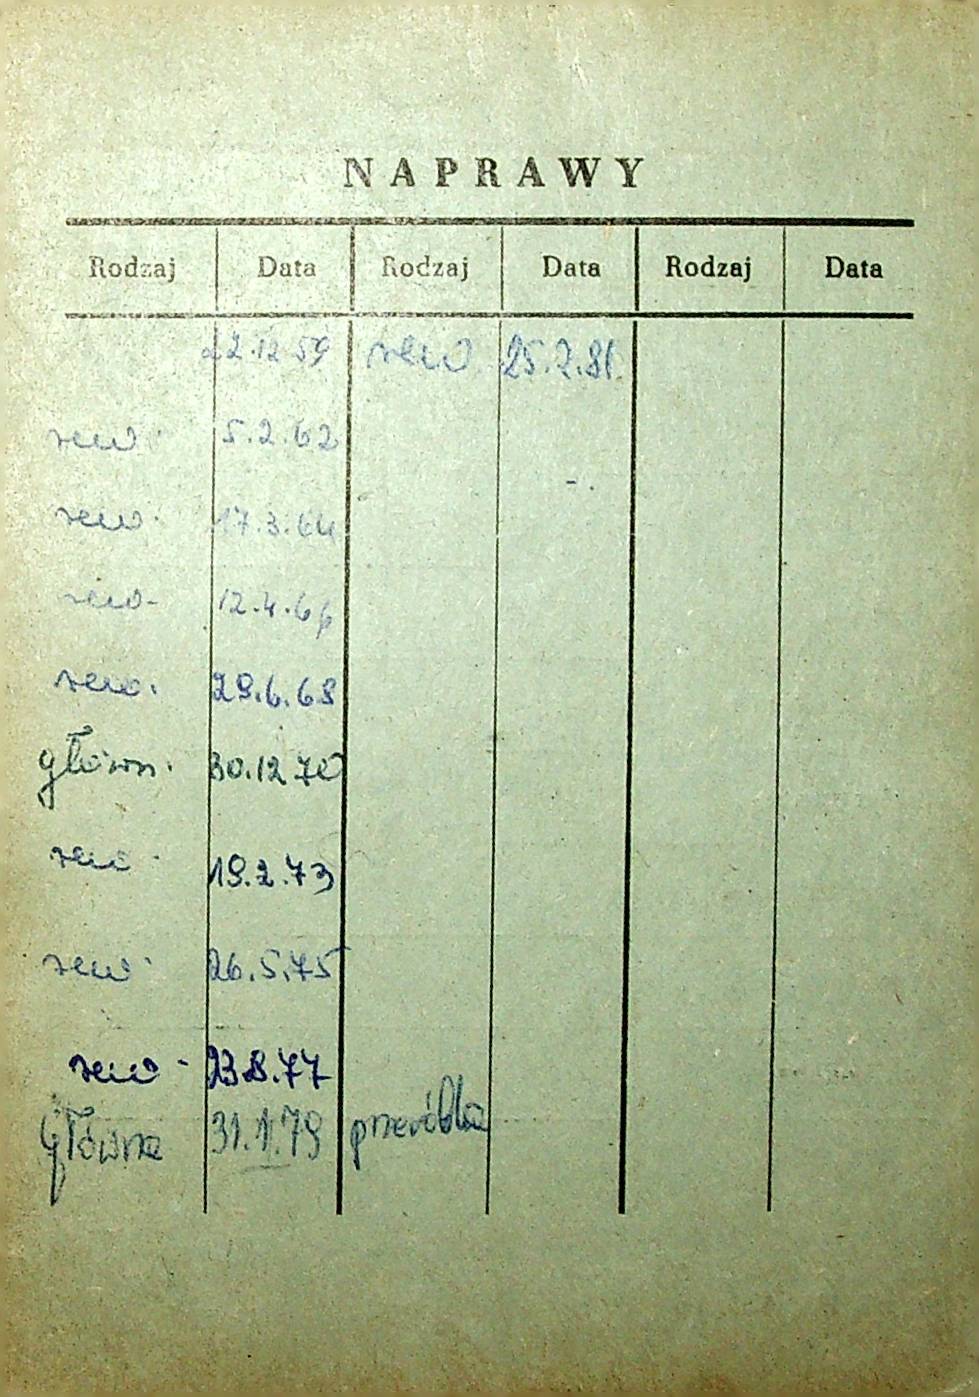 NAPRAWY
Rodzaj Data Rodzaj Data Rodzaj Data
22.12.59 rew. 25.2.81.
rew. 5.2.62
rew. 17.3.64
rew. 12.4.66
rew. 29.6.68
główn. 30.12.70
rew. 19.2.73
rew. 26.5.75
rew. 23.8.77
Główna 31.1.79 przeróbka